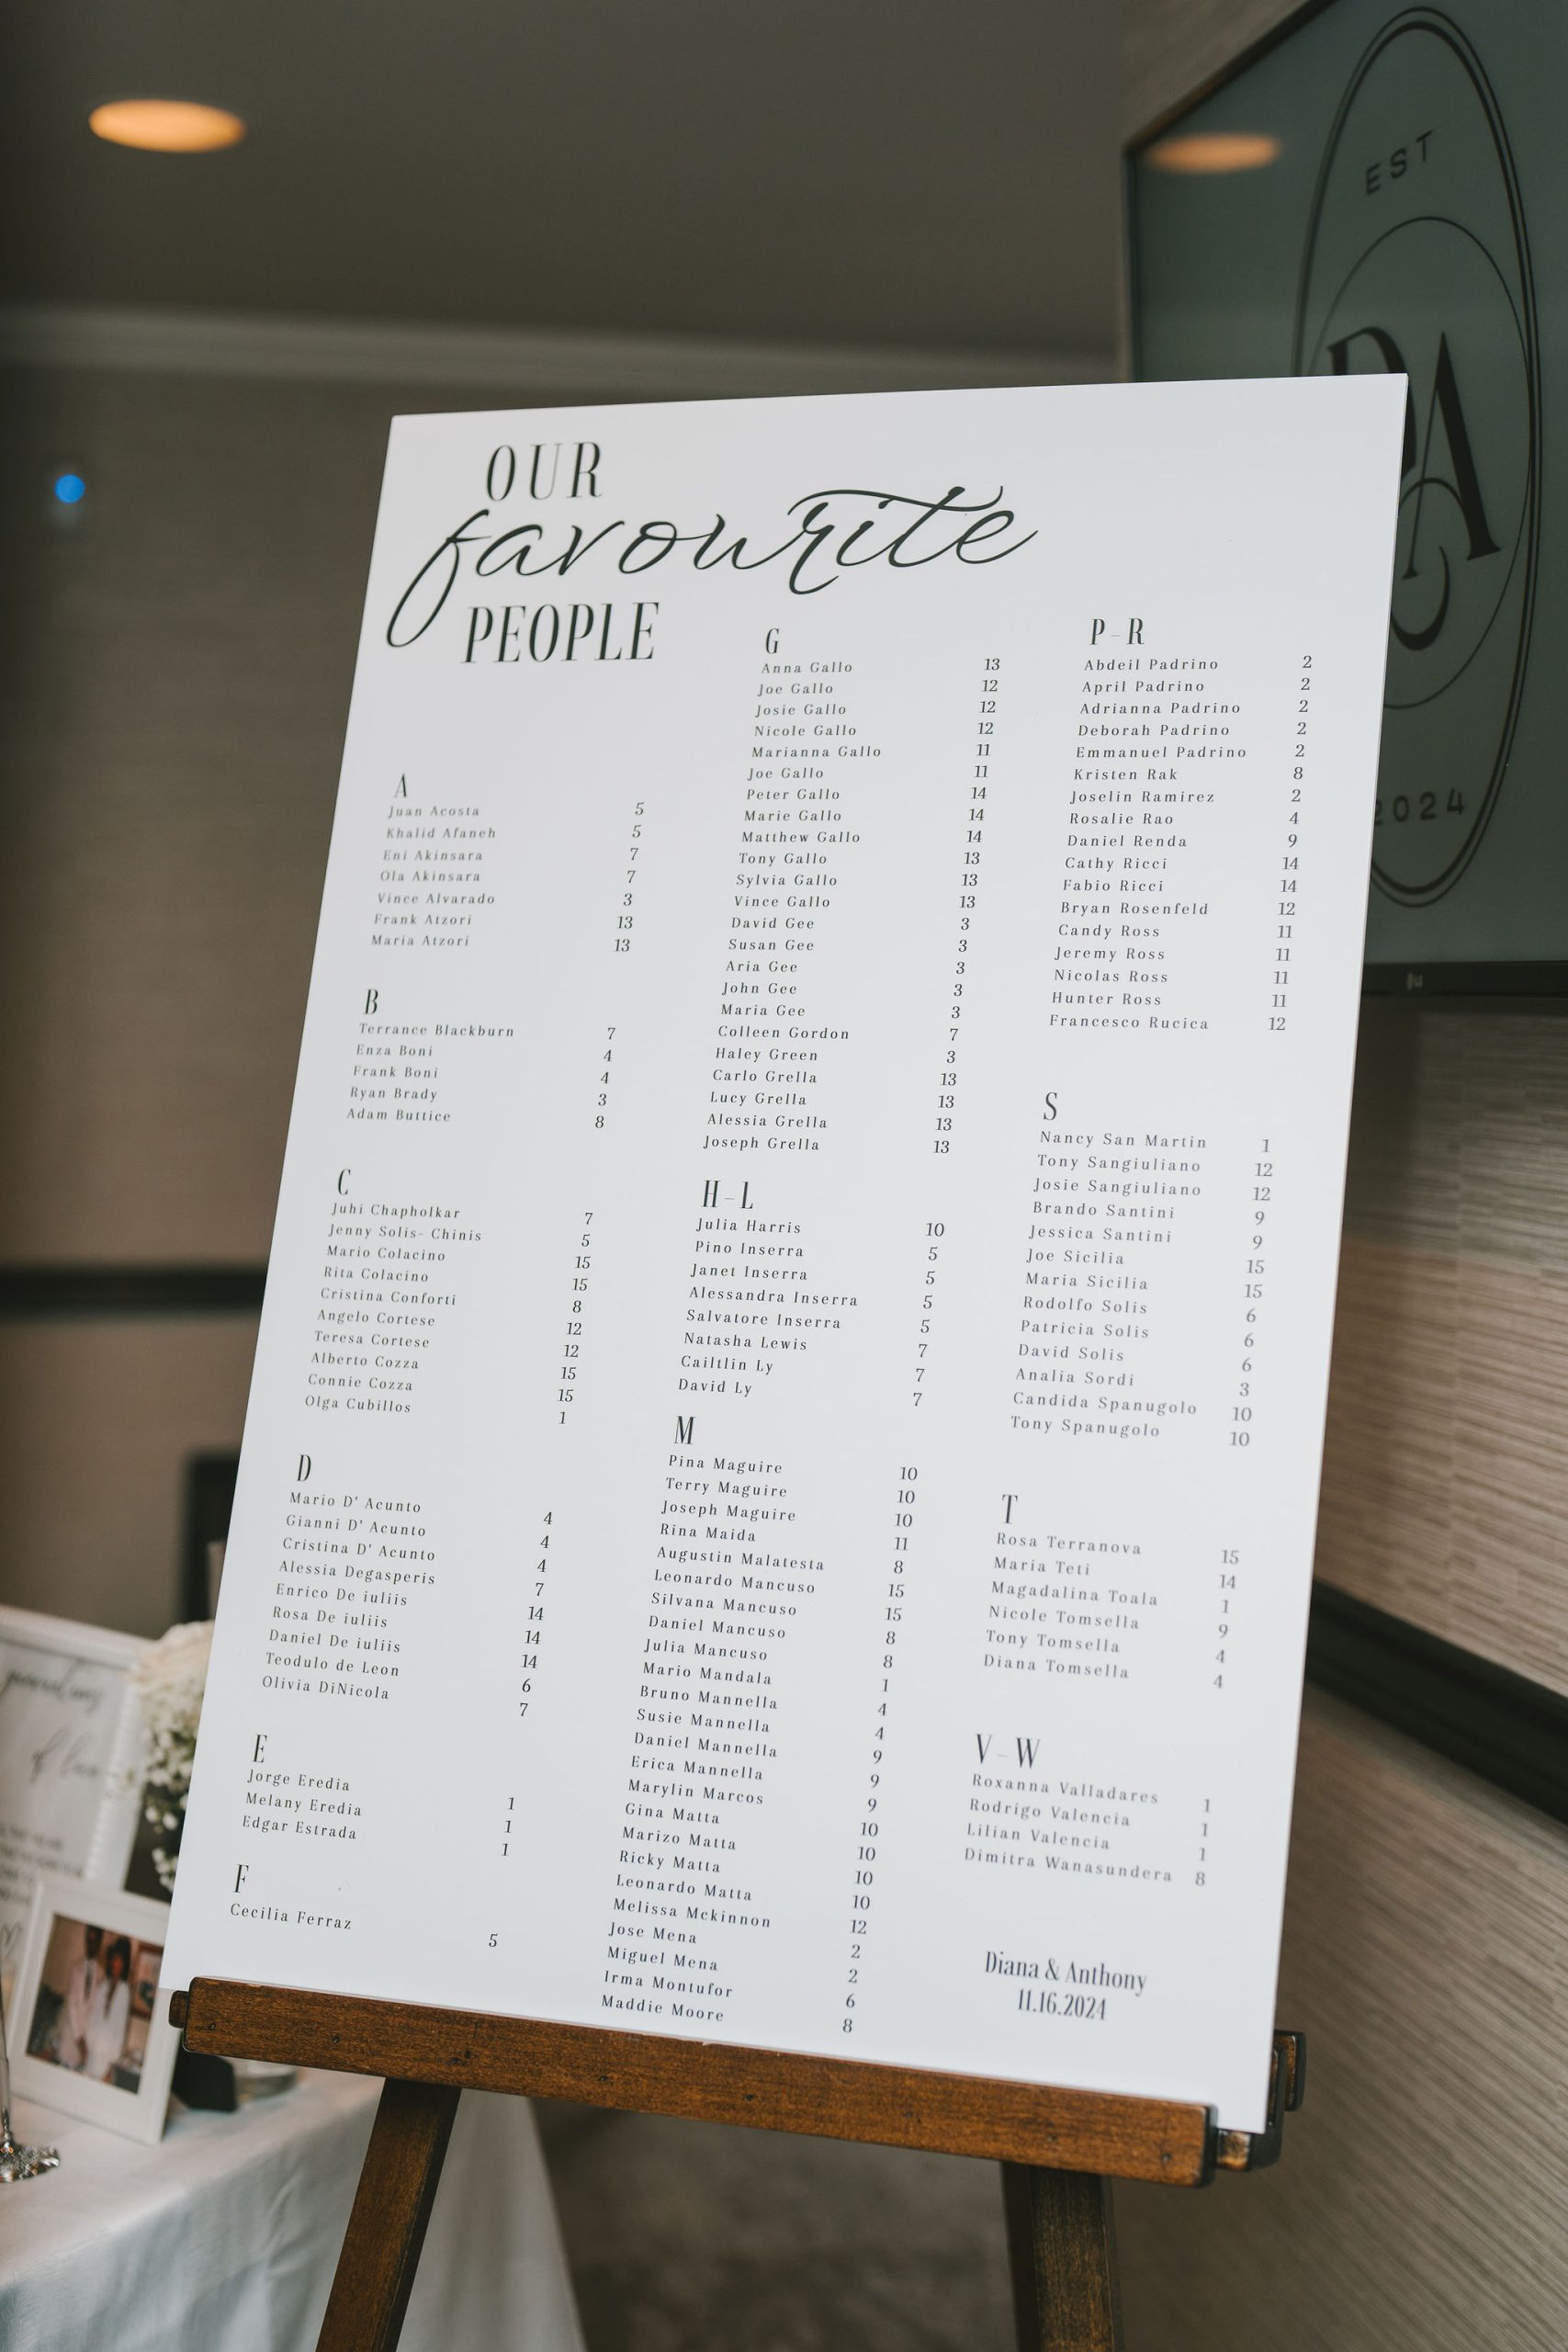 OUR
favourite
PEOPLE
A
Juan Acosta 5
Khalid Afaneh 5
Eni Akinsara 7
Ola Akinsara 7
Vince Alvarado 3
Frank Atzori 13
Maria Atzori 13
B
Terrance Blackburn 7
Enza Boni 4
Frank Boni 4
Ryan Brady 3
Adam Buttice 8
C
Juhi Chapholkar 7
Jenny Solis- Chinis 5
Mario Colacino 15
Rita Colacino 15
Cristina Conforti 8
Angelo Cortese 12
Teresa Cortese 12
Alberto Cozza 15
Connie Cozza 15
Olga Cubillos 1
D
Mario D' Acunto 4
Gianni D' Acunto 4
Cristina D' Acunto 4
Alessia Degasperis 7
Enrico De iuliis 14
Rosa De iuliis 14
Daniel De iuliis 14
Teodulo de Leon 6
Olivia DiNicola 7
E
Jorge Eredia 1
Melany Eredia 1
Edgar Estrada 1
F
Cecilia Ferraz 5
G
Anna Gallo 13
Joe Gallo 12
Josie Gallo 12
Nicole Gallo 12
Marianna Gallo 11
Joe Gallo 11
Peter Gallo 14
Marie Gallo 14
Matthew Gallo 14
Tony Gallo 13
Sylvia Gallo 13
Vince Gallo 13
David Gee 3
Susan Gee 3
Aria Gee 3
John Gee 3
Maria Gee 3
Colleen Gordon 7
Haley Green 3
Carlo Grella 13
Lucy Grella 13
Alessia Grella 13
Joseph Grella 13
H-L
Julia Harris 10
Pino Inserra 5
Janet Inserra 5
Alessandra Inserra 5
Salvatore Inserra 5
Natasha Lewis 7
Cailtlin Ly 7
David Ly 7
M
Pina Maguire 10
Terry Maguire 10
Joseph Maguire 10
Rina Maida 11
Augustin Malatesta 8
Leonardo Mancuso 15
Silvana Mancuso 15
Daniel Mancuso 8
Julia Mancuso 8
Mario Mandala 1
Bruno Mannella 4
Susie Mannella 4
Daniel Mannella 9
Erica Mannella 9
Marylin Marcos 9
Gina Matta 10
Marizo Matta 10
Ricky Matta 10
Leonardo Matta 10
Melissa Mckinnon 12
Jose Mena 2
Miguel Mena 2
Irma Montufor 6
Maddie Moore 8
P-R
Abdeil Padrino 2
April Padrino 2
Adrianna Padrino 2
Deborah Padrino 2
Emmanuel Padrino 2
Kristen Rak 8
Joselin Ramirez 2
Rosalie Rao 4
Daniel Renda 9
Cathy Ricci 14
Fabio Ricci 14
Bryan Rosenfeld 12
Candy Ross 11
Jeremy Ross 11
Nicolas Ross 11
Hunter Ross 11
Francesco Rucica 12
S
Nancy San Martin 1
Tony Sangiuliano 12
Josie Sangiuliano 12
Brando Santini 9
Jessica Santini 9
Joe Sicilia 15
Maria Sicilia 15
Rodolfo Solis 6
Patricia Solis 6
David Solis 6
Analia Sordi 3
Candida Spanugolo 10
Tony Spanugolo 10
T
Rosa Terranova 15
Maria Teti 14
Magadalina Toala 1
Nicole Tomsella 9
Tony Tomsella 4
Diana Tomsella 4
V-W
Roxanna Valladares 1
Rodrigo Valencia 1
Lilian Valencia 1
Dimitra Wanasundera 8
Diana & Anthony
11.16.2024
EST
2024